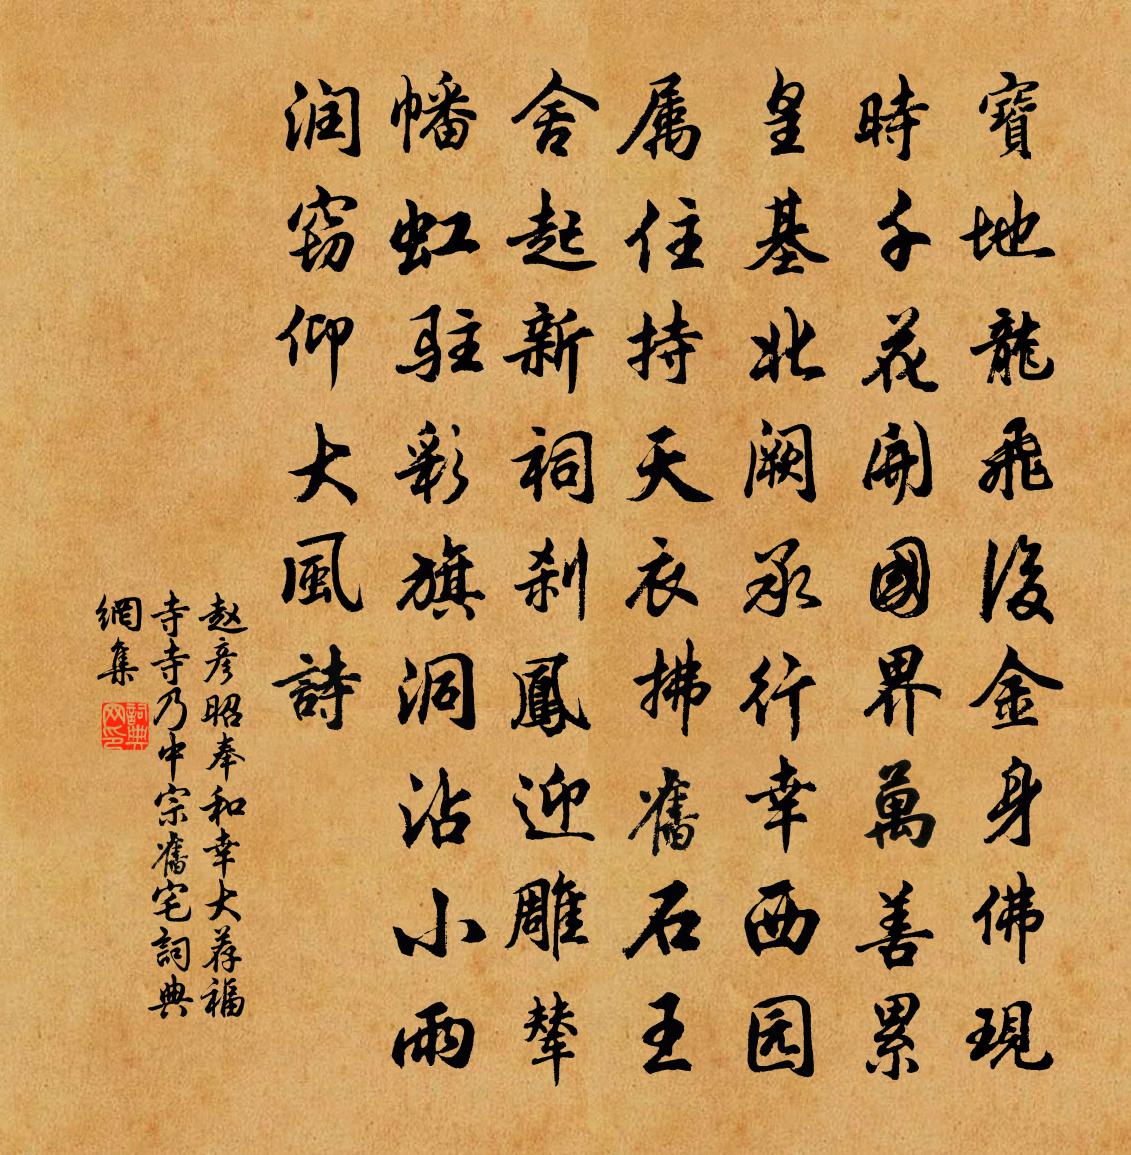 寶地龍飛後金身佛現
時千花開國界萬善累
皇基北阙承行幸西园
属住持天衣拂舊石王
舍起新祠刹鳳迎雕輦
幡虹駐彩旗洞沾小雨
润窃仰大風詩
赵彦昭奉和幸大荐福
寺寺乃中宗舊宅詞典
網集
詞典
网印